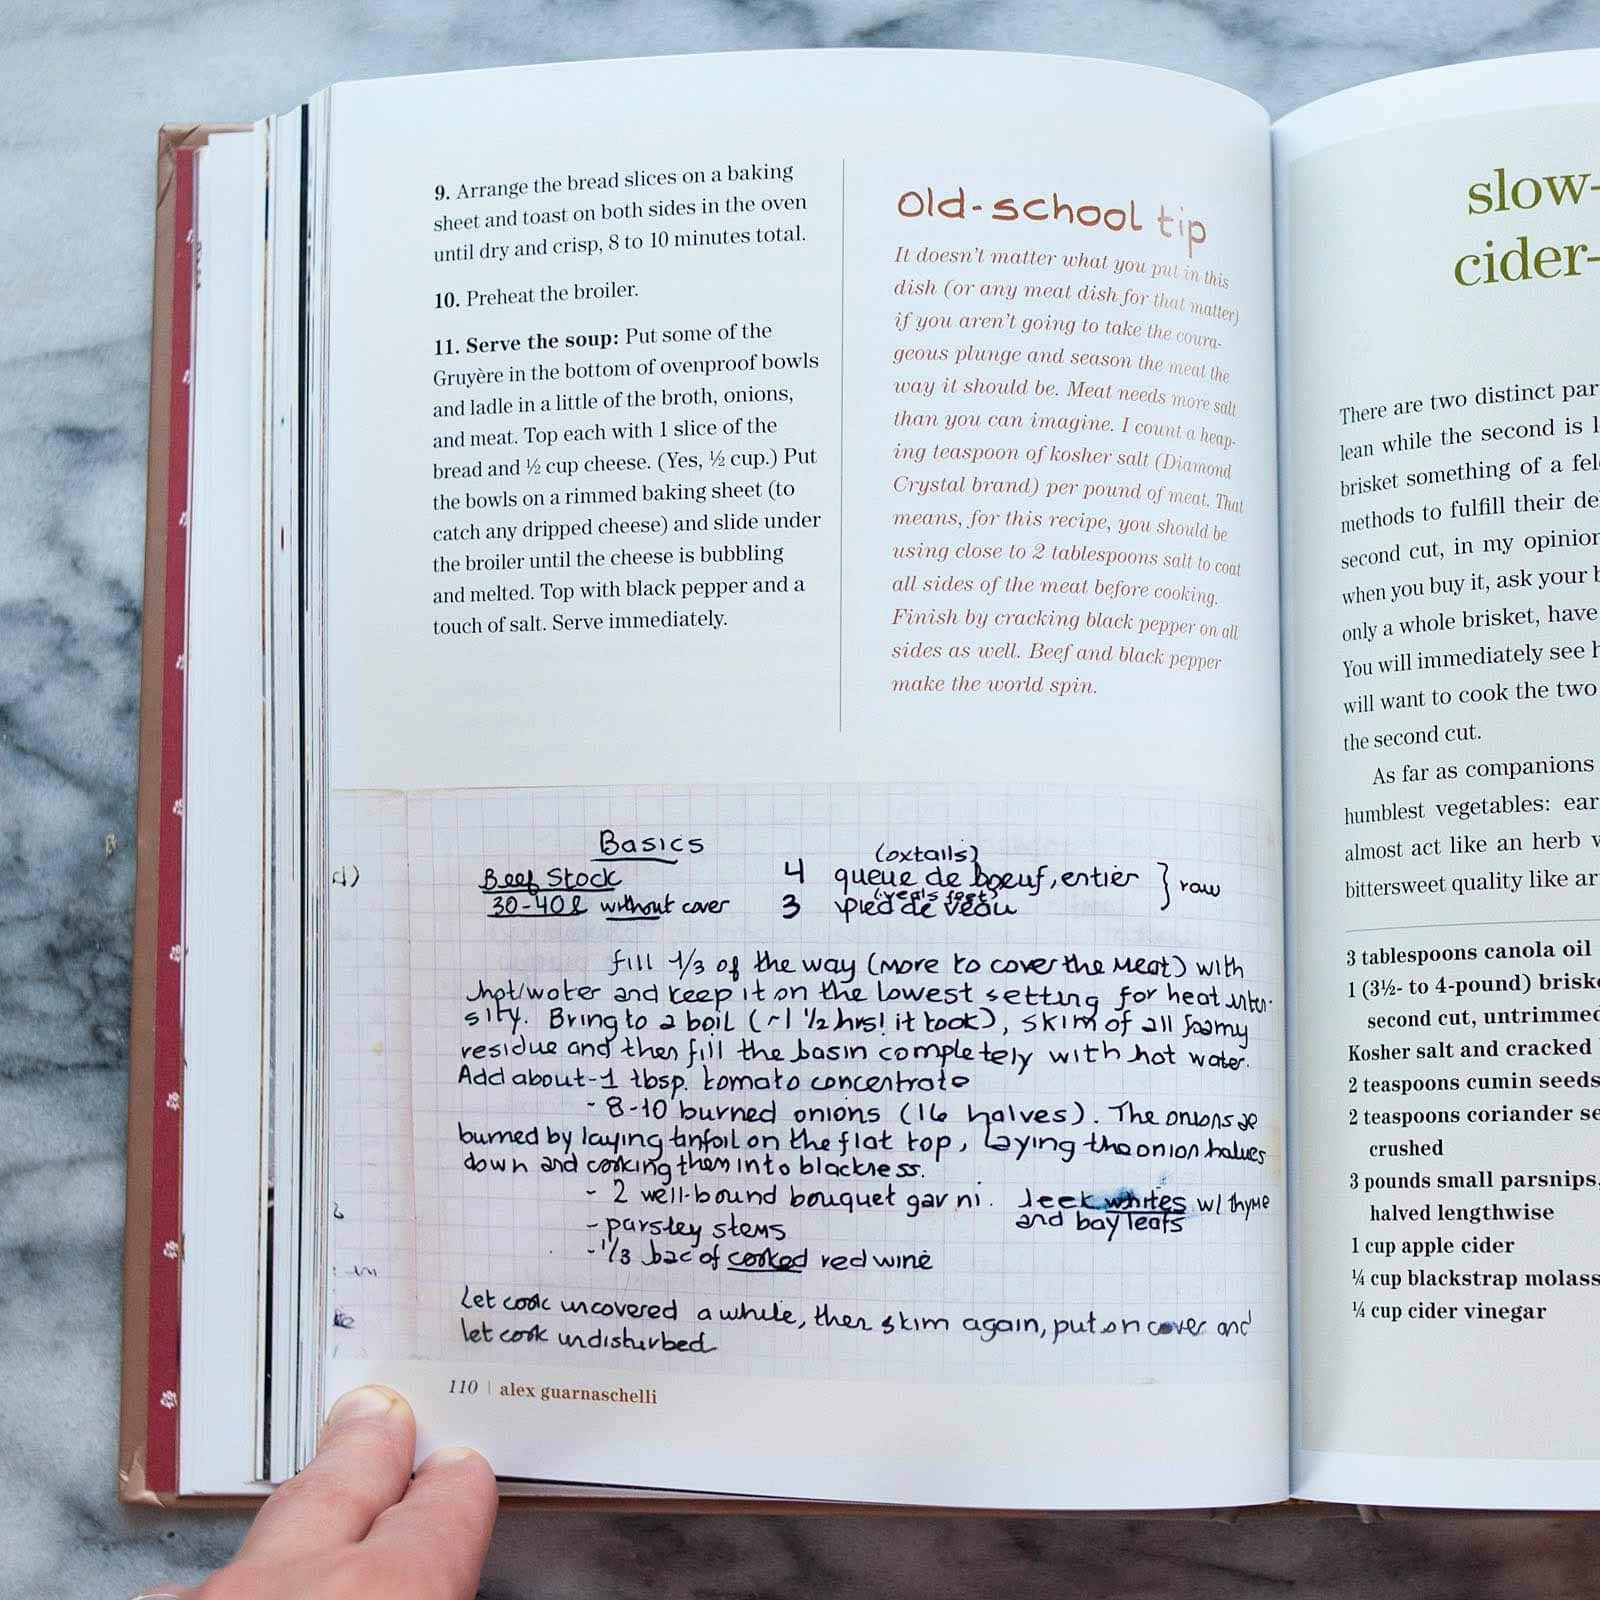 9. Arrange the bread slices on a baking
sheet and toast on both sides in the oven
until dry and crisp, 8 to 10 minutes total.
10. Preheat the broiler.
11. Serve the soup: Put some of the
Gruyère in the bottom of ovenproof bowls
and ladle in a little of the broth, onions,
and meat. Top each with 1 slice of the
bread and ½ cup cheese. (Yes, ½ cup.) Put
the bowls on a rimmed baking sheet (to
catch any dripped cheese) and slide under
the broiler until the cheese is bubbling
and melted. Top with black pepper and a
touch of salt. Serve immediately.
Old-school tip
It doesn't matter what you put in this
dish (or any meat dish for that matter)
if you aren't going to take the coura-
geous plunge and season the meat the
way it should be. Meat needs more salt
than you can imagine. I count a heap-
ing teaspoon of kosher salt (Diamond
Crystal brand) per pound of meat. That
means, for this recipe, you should be
using close to 2 tablespoons salt to coat
all sides of the meat before cooking.
Finish by cracking black pepper on all
sides as well. Beef and black pepper
make the world spin.
Basics
(oxtails)
Beef Stock 4 queue de boeuf, entier } raw
(veal's feet)
30-40ℓ without cover 3 pied de veau
fill 1/3 of the way (more to cover the meat) with
hot/water and keep it on the lowest setting for heat inten-
sity. Bring to a boil (~1 1/2 hrs! it took), skim of all foamy
residue and then fill the basin completely with hot water.
Add about ~1 tbsp. tomato concentrate
- 8-10 burned onions (16 halves). The onions are
burned by laying tinfoil on the flat top, laying the onion halves
down and cooking them into blackness.
- 2 well-bound bouquet garni. leek whites w/ thyme
and bay leafs
- parsley stems
- 1/3 bac of cooked red wine
Let cook uncovered a while, then skim again, put on cover and
let cook undisturbed
110 | alex guarnaschelli
slow-
cider-
There are two distinct par
lean while the second is l
brisket something of a fel
methods to fulfill their de
second cut, in my opinion
when you buy it, ask your b
only a whole brisket, have
You will immediately see h
will want to cook the two
the second cut.
As far as companions
humblest vegetables: ear
almost act like an herb v
bittersweet quality like ar
3 tablespoons canola oil
1 (3½- to 4-pound) briske
second cut, untrimmed
Kosher salt and cracked
2 teaspoons cumin seeds
2 teaspoons coriander se
crushed
3 pounds small parsnips,
halved lengthwise
1 cup apple cider
¼ cup blackstrap molass
¼ cup cider vinegar